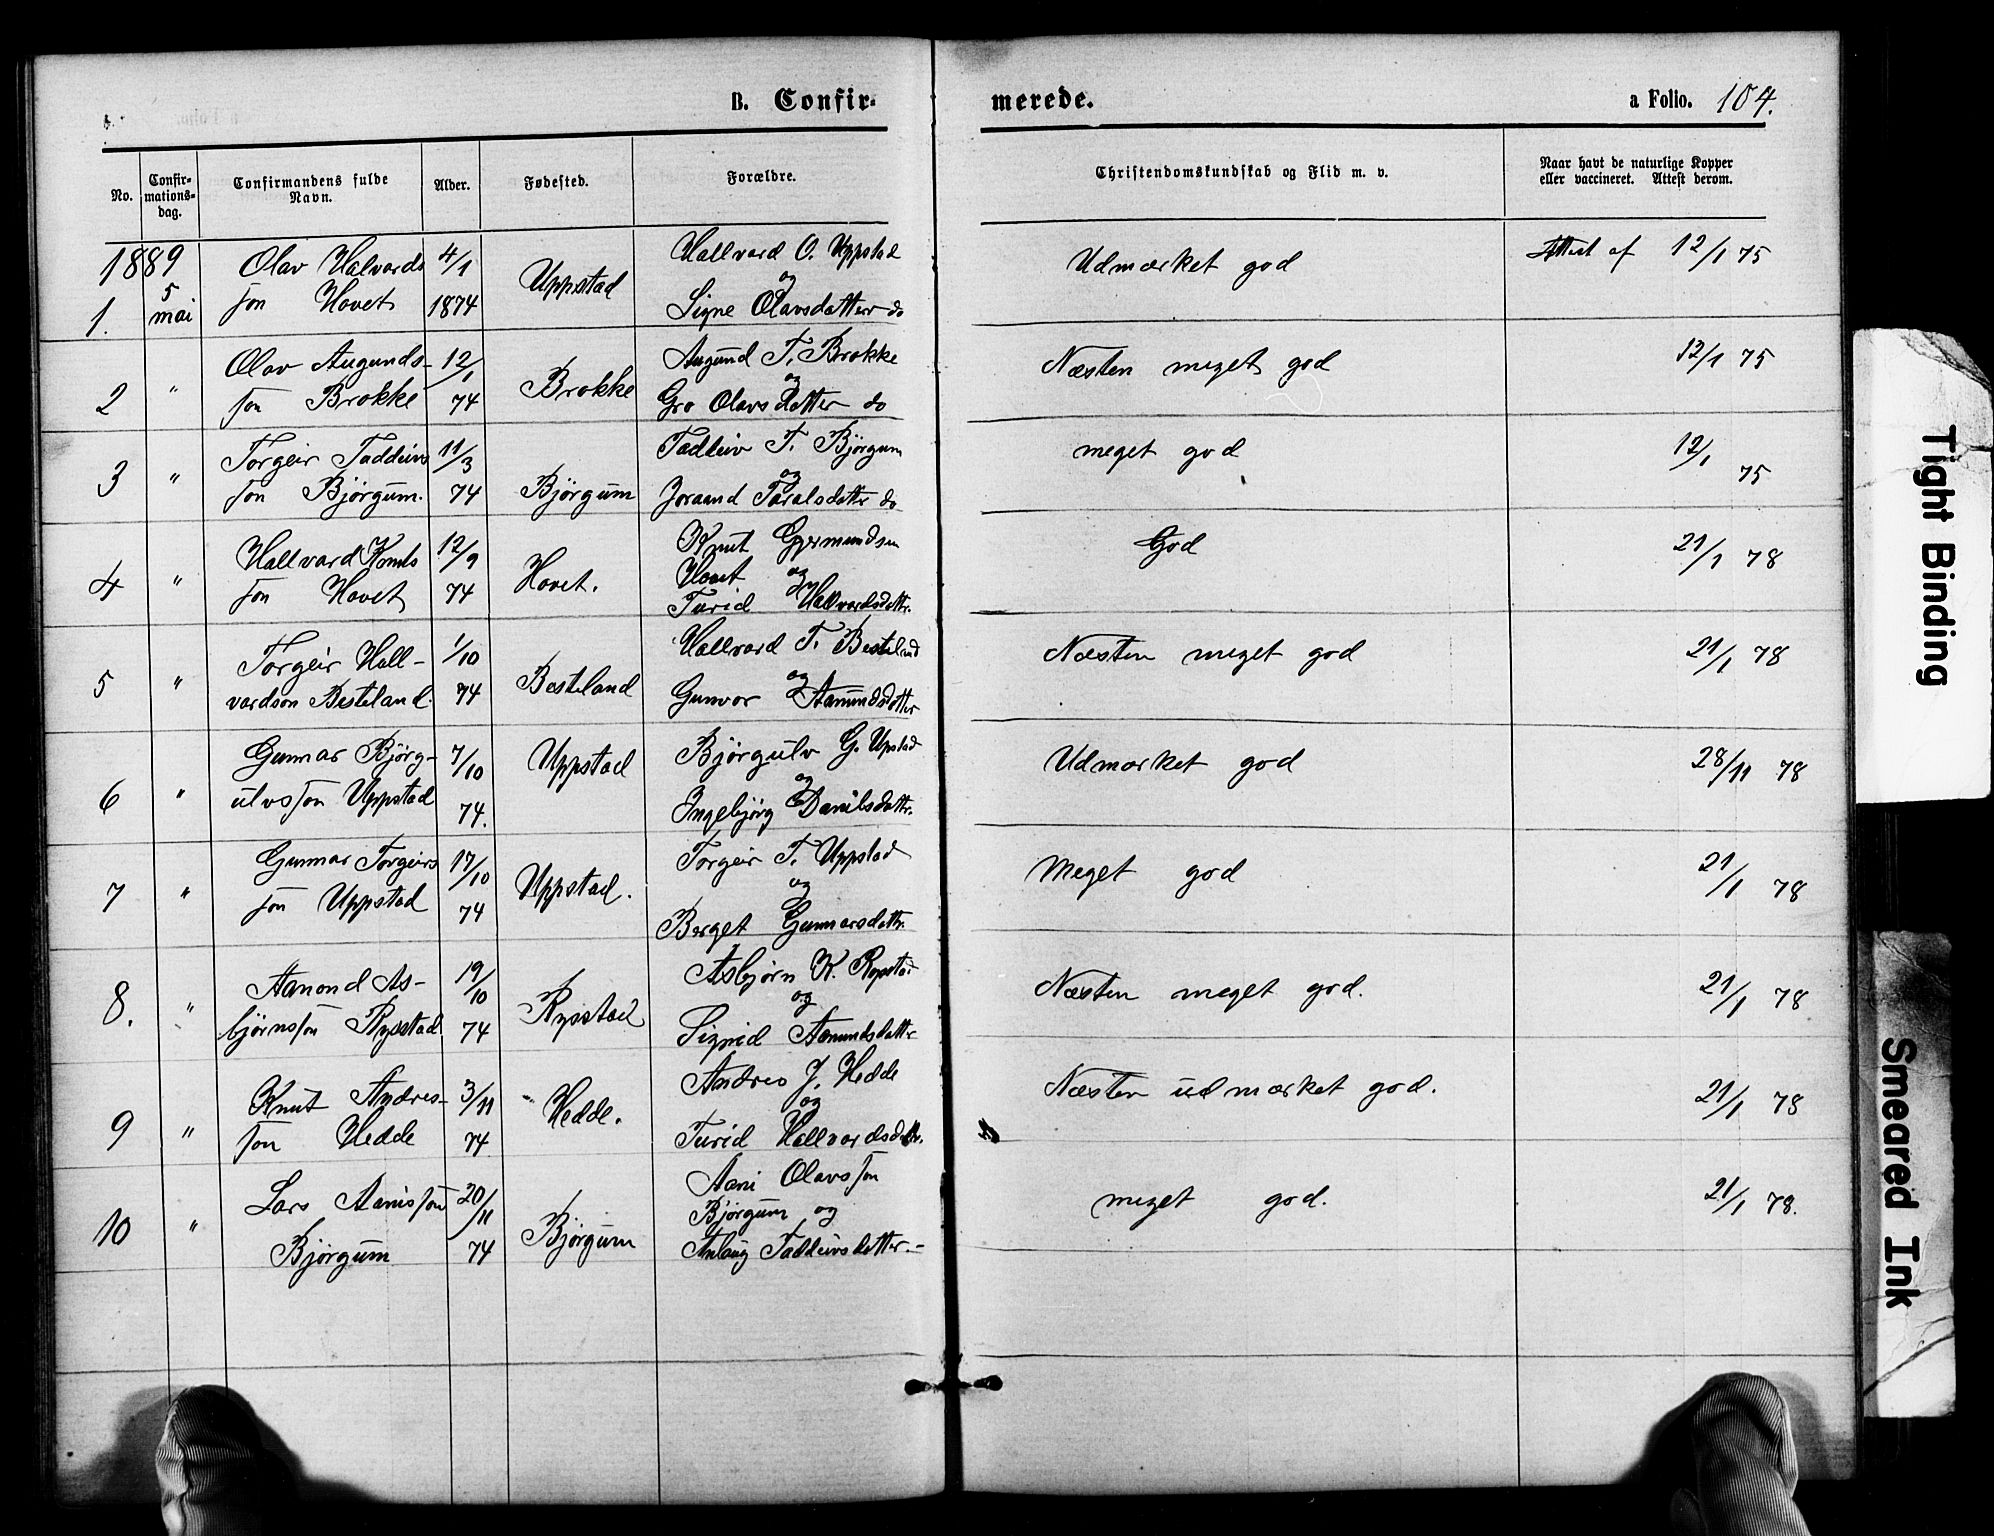 B. Confir- merede. a Folio. 104.
No. Confir-mations-dag. Confirmandens fulde Navn. Alder. Fødested. Forældre. Christendomskundskab og Flid m. v. Naar havt de naturlige Kopper eller vaccineret. Attest derom.
1889
1. 5 mai Olav Halvards 4/1 Uppstad Hallvard O. Uppstad Udmærket god Attest af 12/1 75
son Hovet 1874 og
Signe Olavsdatter do
2 " Olav Augunds- 12/1 Brokke Augund T. Brokke Næsten meget god 12/1 75
son Brokke 74 og
Gro Olavsdatter do
3 " Torgeir Taddeivs 11/3 Bjørgum Taddeiv T. Bjørgum meget god 12/1 75
son Bjørgum. 74 og
Joraand Taralsdatter do
4 " Hallvard Knuts 12/9 Hovet. Knut Gjermundsen God 21/1 78
son Hovet 74 Hovet og
Turid Hallvardsdattr.
5 " Torgeir Hall- 1/10 Besteland Hallvard T. Besteland Næsten meget god 21/1 78
vardson Besteland. 74 og
Gunvor Aamundsdatter
6 " Gunnar Bjørg- 7/10 Uppstad Bjørgulv G. Upstad Udmærket god 28/11 78
ulvsson Uppstad 74. og
Ingebjørg Danilsdattr.
7 " Gunnar Torgeirs 17/10 Uppstad. Torgeir T. Uppstad Meget god 21/1 78
son Uppstad 74 og
Berget Gunnarsdattr.
8. " Aanond As- 19/10 Rysstad Asbjørn K. Rysstad Næsten meget god. 21/1 78
bjørnsson Rysstad 74 og
Sigrid Aamundsdattr
9 " Knut Andres- 3/11 Hedde. Andres J. Hedde Næsten udmærket god. 21/1 78
son Hedde 74 og
Turid Hallvardsdattr.
10 " Lars Aanisson 20/11 Bjørgum Aani Olavsson meget god. 21/1 78.
Bjørgum 74 Bjørgum og
Anlaug Taddeivsdatter.-
Tight Binding
Smeared Ink